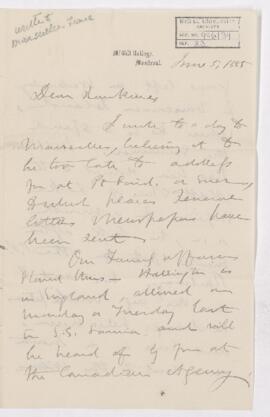 write to
Marseilles, France
McGill UNIVERSITY
ARCHIVES
ACC. NO.
REF.
McGill College,
Montreal.
June 5, 1885
Dear
I write to a day to
Marseilles, believing it to
be too late to address
you at Pt Said. or Suez,
places General
letters & Newspapers have
been sent
Our family affairs
stand thus —
in England, arrived on
Monday or Tuesday last
in S.S. and will
be heard of by you at
the Canadian Agency.